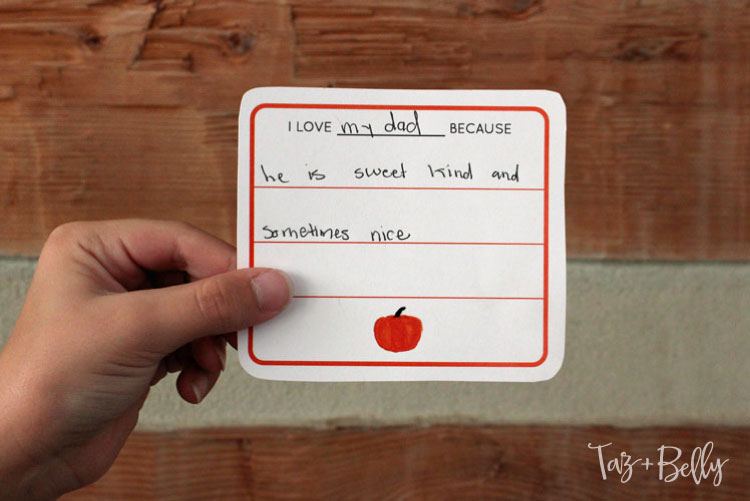 I LOVE my dad BECAUSE
he is sweet kind and
sometimes nice
Taz+Belly